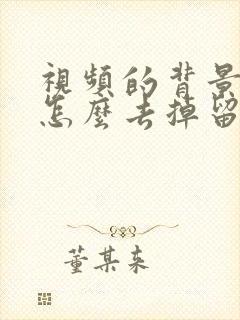 視頻的背景
怎麼去掉留
董某来